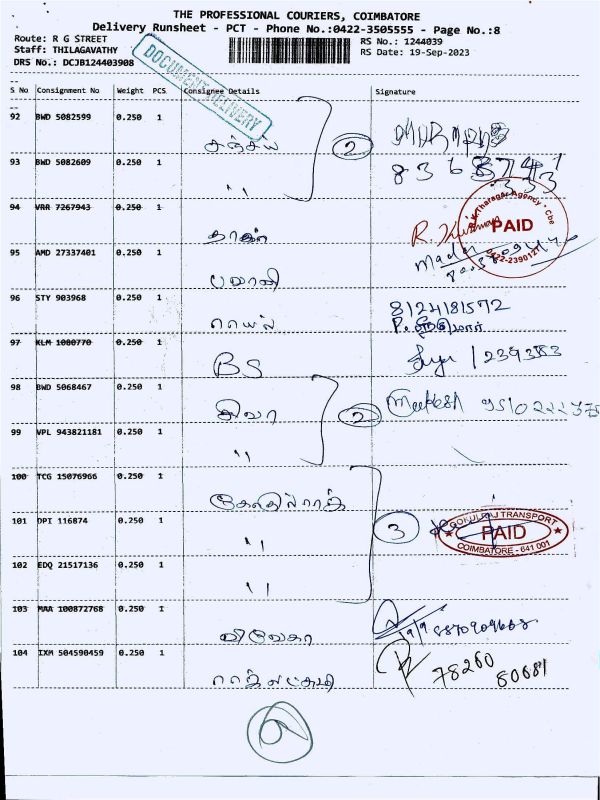 THE PROFESSIONAL COURIERS, COIMBATORE
Delivery Runsheet - PCT - Phone No.:0422-3505555 - Page No.:8
Route: R G STREET
Staff: THILAGAVATHY
DRS No.: DCJB124403908
RS No.: 1244039
RS Date: 19-Sep-2023
DOCUMENT DELIVERY
S No Consignment No Weight PCS Consignee Details Signature
92 BWD 5082599 0.250 1 சஞ்சய் 2
93 BWD 5082609 0.250 1 "
94 VRR 7267943 0.250 1 R. Kumar
Tharagai Agency - Cbe
PAID
0422-2390127
95 AMD 27337401 0.250 1 பழனி
96 STY 903968 0.250 1 8124181572
97 KLM 1080770 0.250 1 BS 1239383
98 BWD 5068467 0.250 1 சிவா 2
99 VPL 943821181 0.250 1 "
100 TCG 15076966 0.250 1
101 DPI 116874 0.250 1 " 3
GOKULRAJ TRANSPORT
PAID
COIMBATORE - 641 001
102 EDQ 21517136 0.250 1 "
103 MAA 100872768 0.250 1 விவேகா
104 IXM 504590459 0.250 1 ராஜலட்சுமி 78260
80681